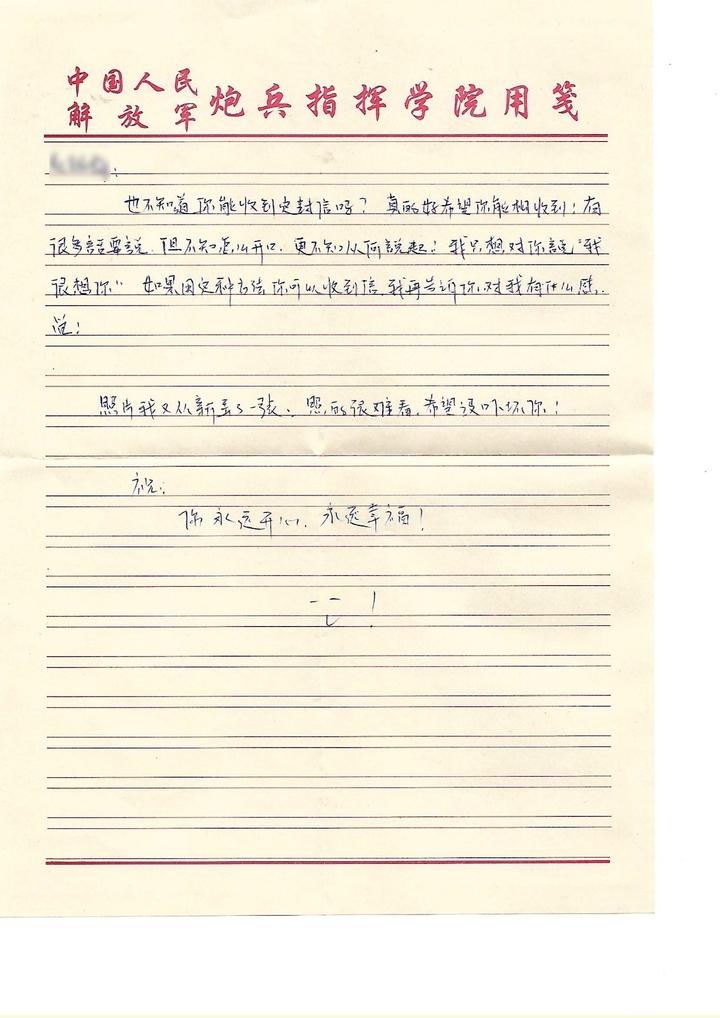 中国人民
解放军炮兵指挥学院用笺
:
也不知道你能收到这封信吗？真的好希望你能收到！有
很多話要說,但不知怎么开口,更不知从何說起！我只想对你說“我
很想你” 如果因这种方法你可以收到信,我再告诉你,对我有什么感
觉！
照片我又从新弄了一张、照的很难看,希望没吓坏你！
祝:
你永远开心,永远幸福！